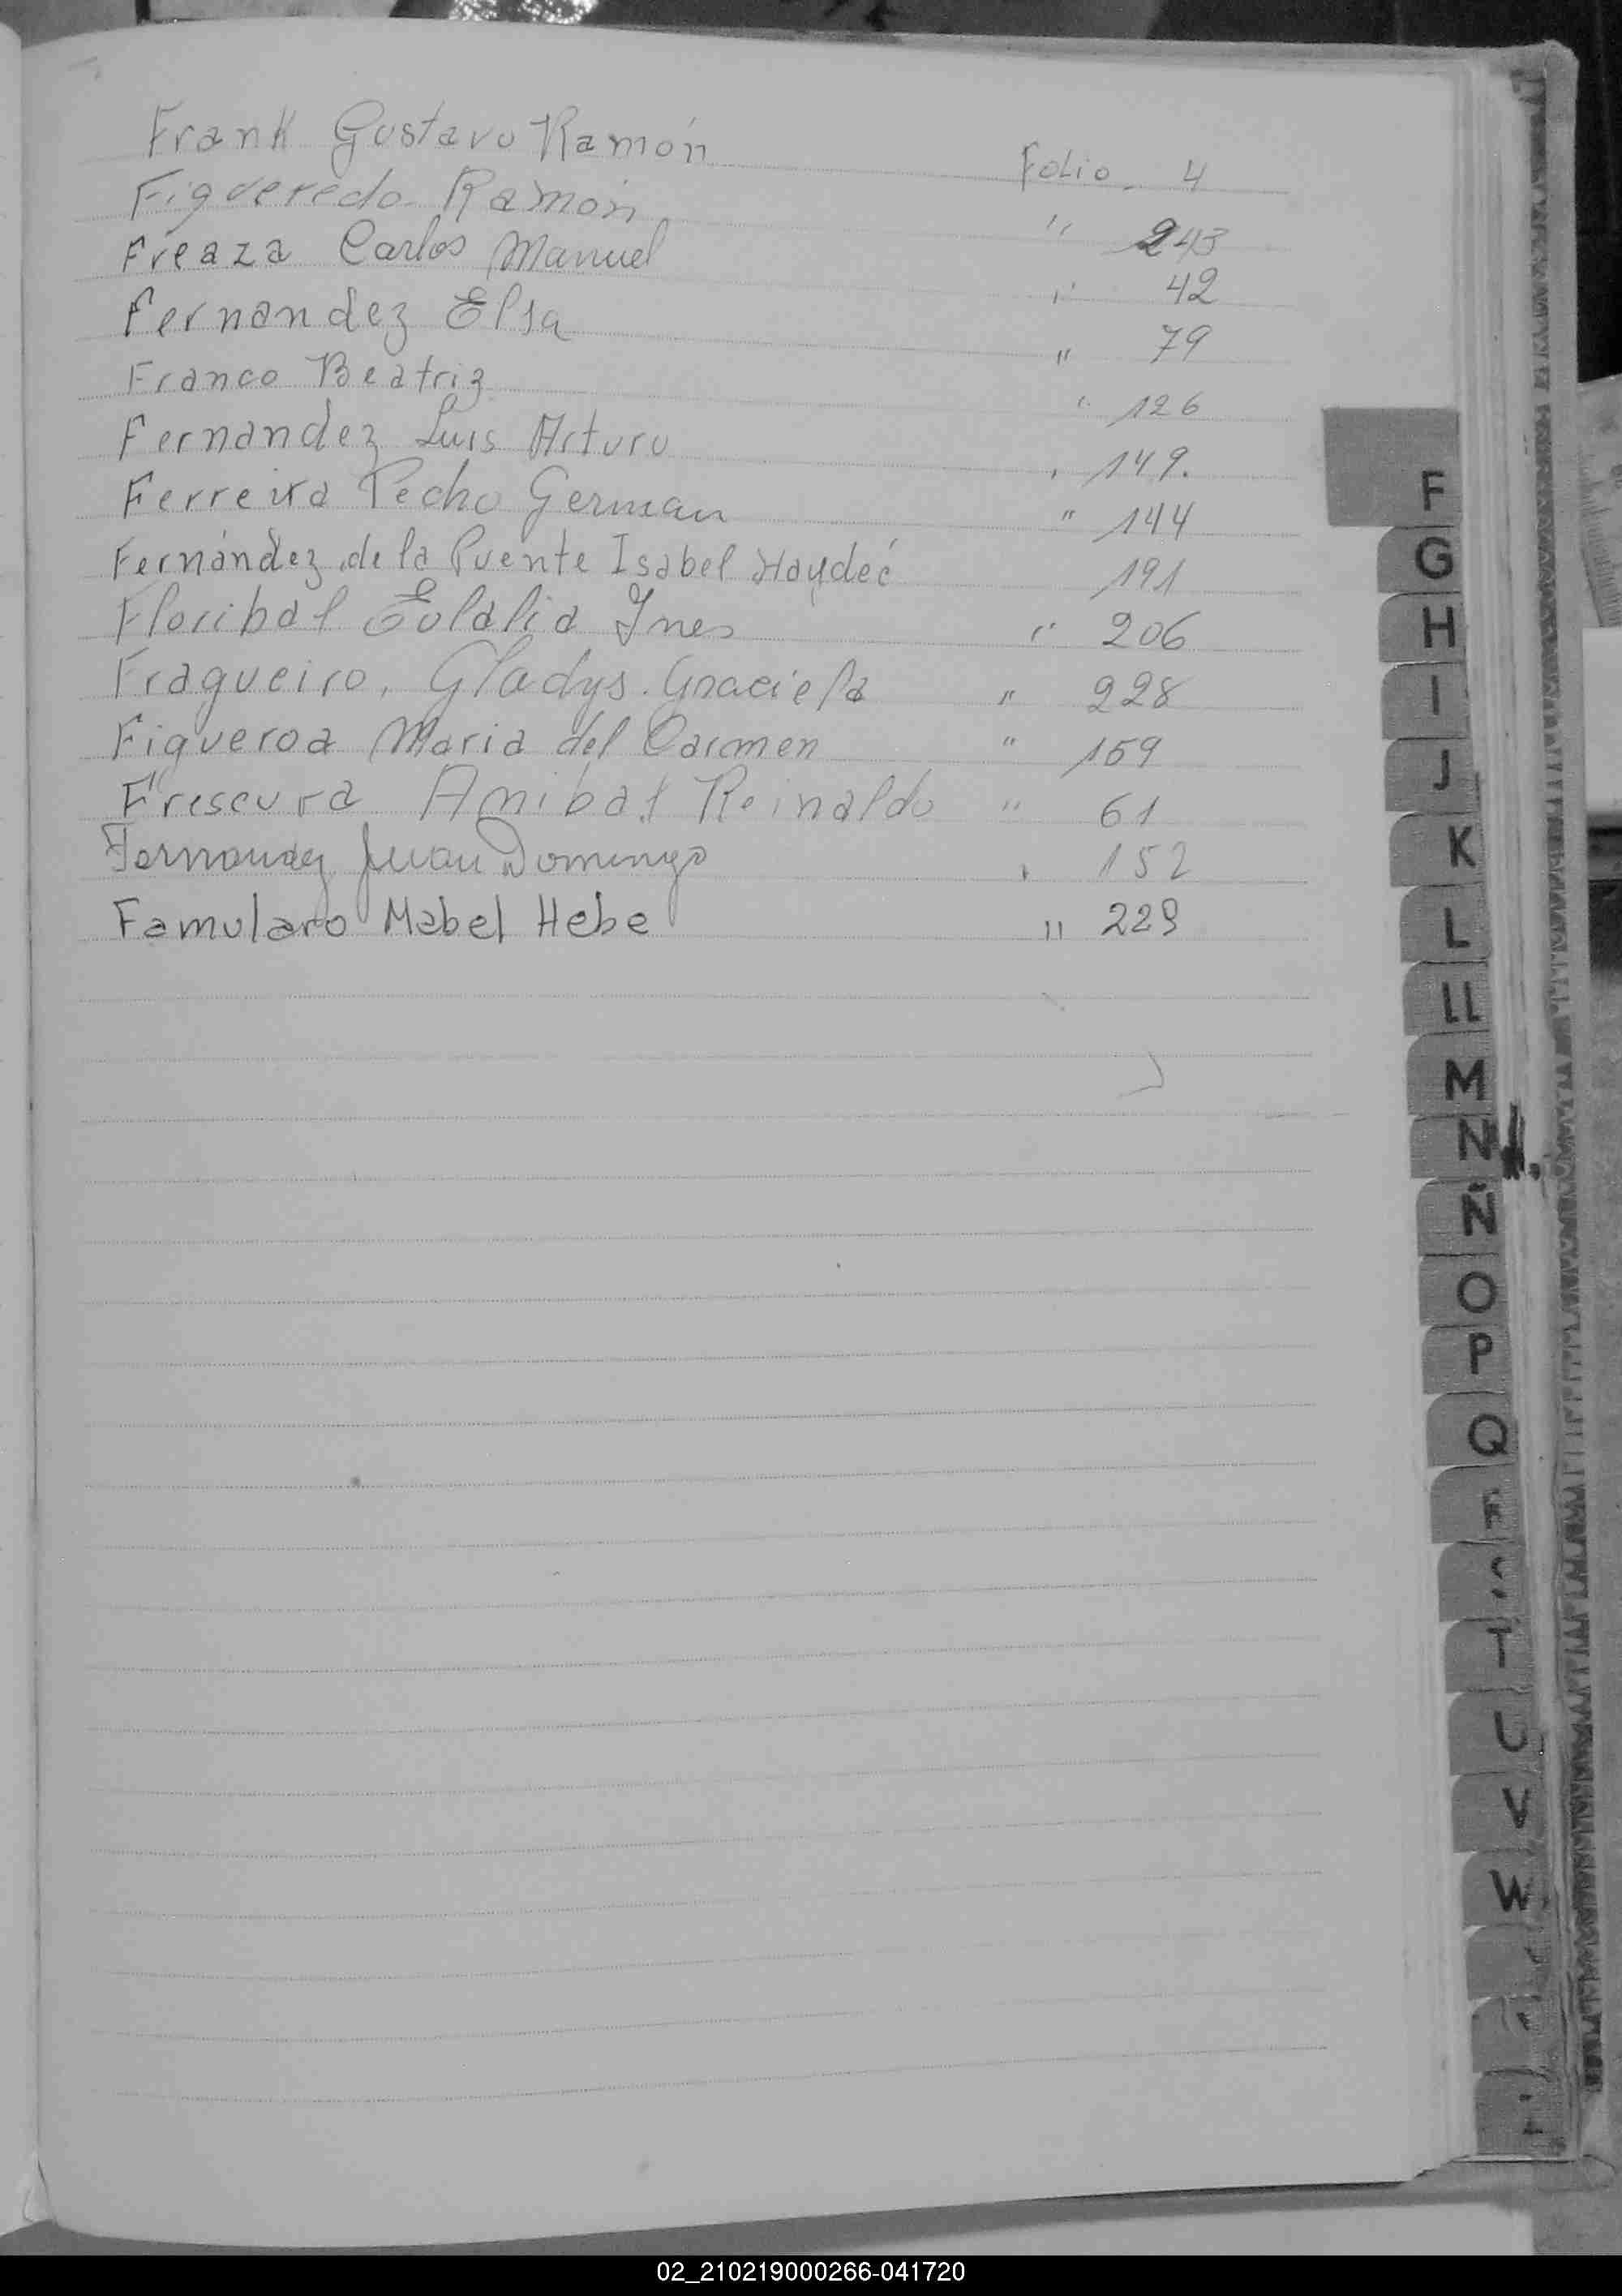 Frank Gustavo Ramón Folio 4
Figueredo Ramón " 243
Freaza Carlos Manuel " 42
Fernandez Elsa " 79
Franco Beatriz " 126
Fernandez Luis Arturo " 149.
Ferreira Pecho German " 144
Fernández de la Puente Isabel Haydeé 191
Floribal Eulalia Ines " 206
Fragueiro, Gladys Graciela " 228
Figueroa Maria del Carmen " 159
Frescura Anibal Reinaldo " 61
Fernandez Juan Domingo " 152
Famularo Mabel Hebe " 229
F
G
H
I
J
K
L
LL
M
N
Ñ
O
P
Q
R
S
T
U
V
W
02_210219000266-041720